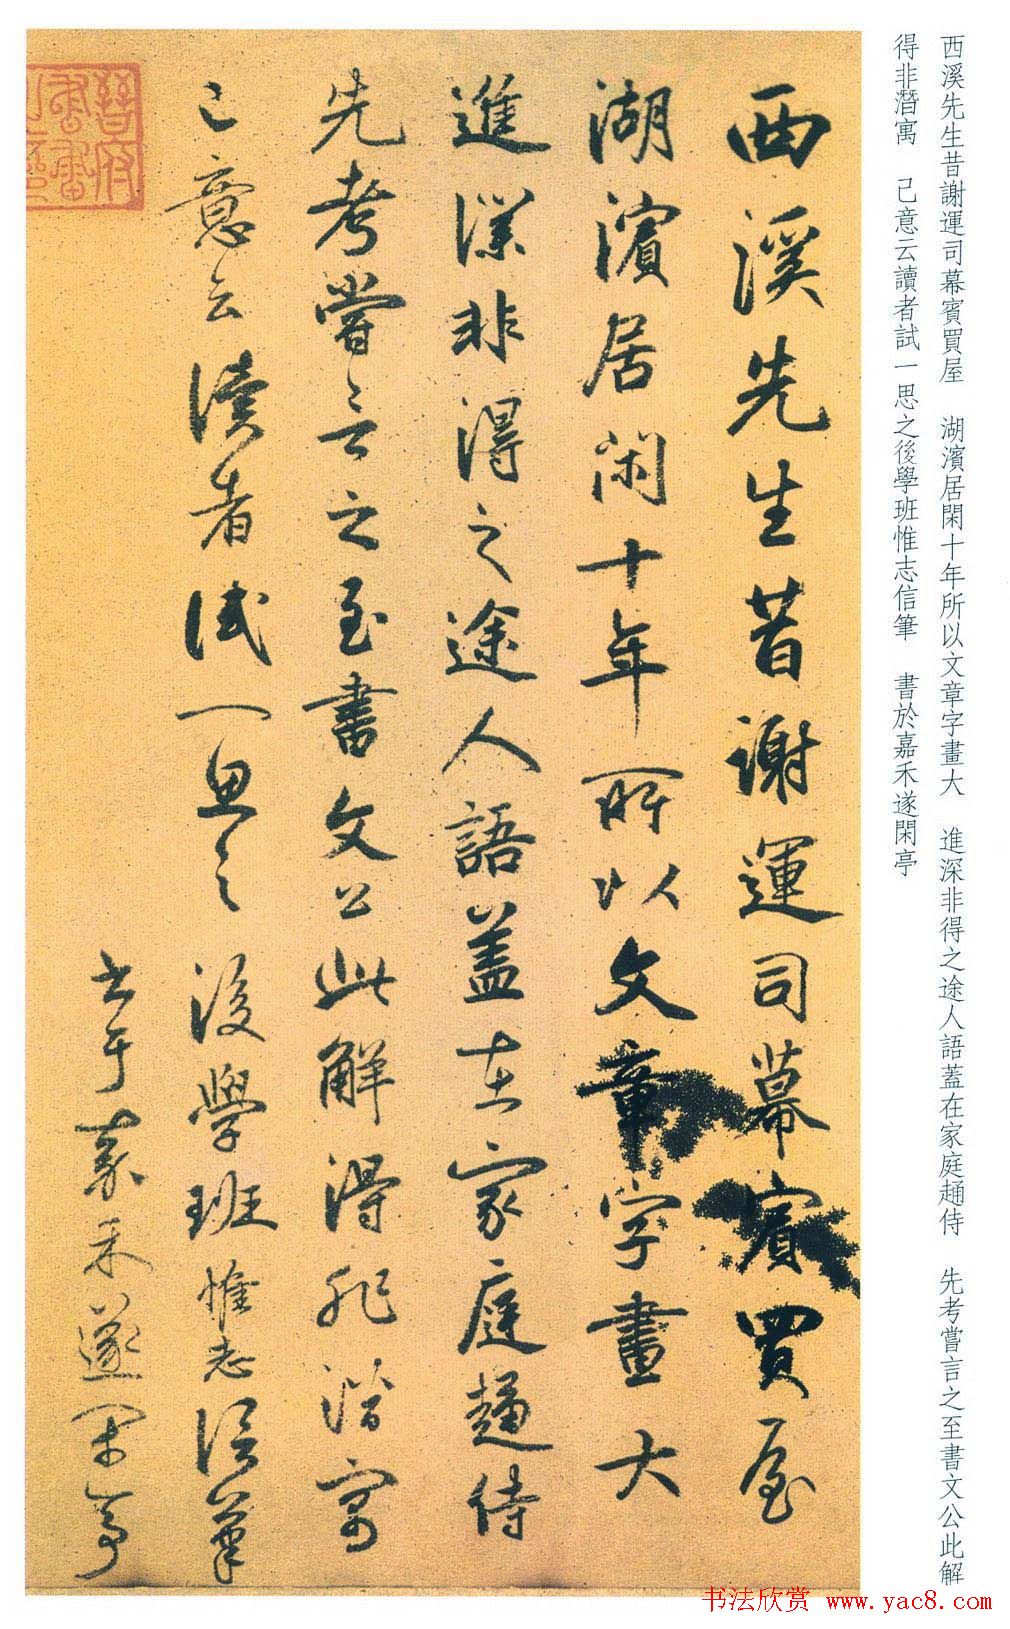 西溪先生昔謝運司幕賓買屋　湖濱居閑十年所以文章字畫大　進深非得之途人語蓋在家庭趨侍　先考嘗言之至書文公此解
得非潛寓　己意云讀者試一思之後學班惟志信筆　書於嘉禾遂閑亭
西溪先生昔謝運司幕賓買屋
湖濱居閑十年所以文章字畫大
進深非得之途人語盖在家庭趨侍
先考嘗言之至書文公此解得非潛寓
己意云讀者試一思之後學班惟志信筆
書于嘉禾遂閑亭
晉府
書畫
书法欣赏 www.yac8.com